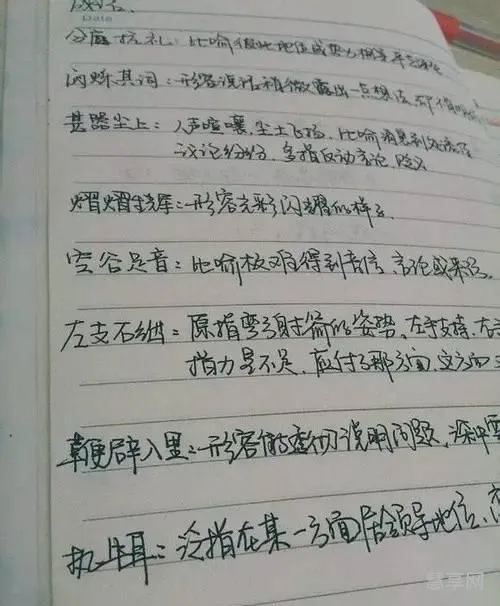 成语.
Date
分庭抗礼: 比喻彼此地位或势力相等平
闪烁其词: 形容说话稍微露出一点想法
甚嚣尘上: 人声喧嚷,尘土飞扬. 比喻消息到处流传
议论纷纷. 多指反动言论. 贬义
熠熠生辉: 形容光彩闪耀的样子.
空谷足音: 比喻极难得到音信、言论或来访.
左支右绌: 原指弯弓射箭的姿势、左手支持、右
指力量不足、应付了那方面、这方面
鞭辟入里: 形容能透彻说明问题、深中
执牛耳: 泛指在某一方面居领导地位、
慧享网